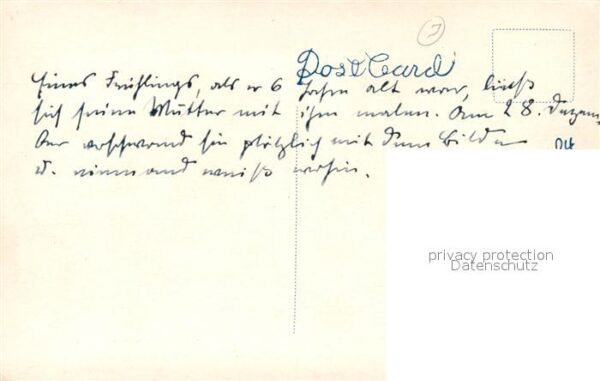 Post Card
Eines Frühlings, als er 6 Jahre alt war, ließ
sich seine Mutter mit ihm malen. Am 28. Dezem-
ber verschwand sie plötzlich mit dem Bilde
u. niemand weiß wohin.
privacy protection
Datenschutz